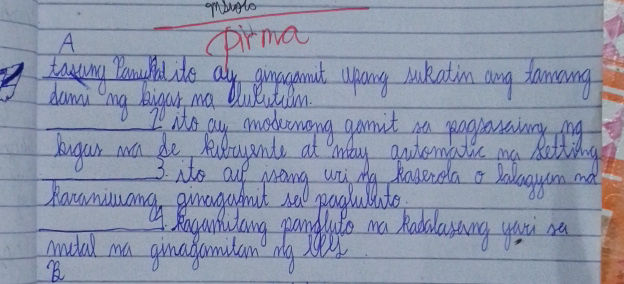 Pirma
A
tasung Panukat ito ay ginagamit upang sukatin ang tamang
dami ng bigas na lulutuin.
2. ito ay modernong gamit sa pagsasaing ng
bigas na de kuryente at may automatic na setting
3. ito ay isang uri ng kaserola o lalagyan na
karaniwang ginagamit sa pagluluto.
4. kagamitang pangluto na kadalasang yari sa
metal na ginagamitan ng
B